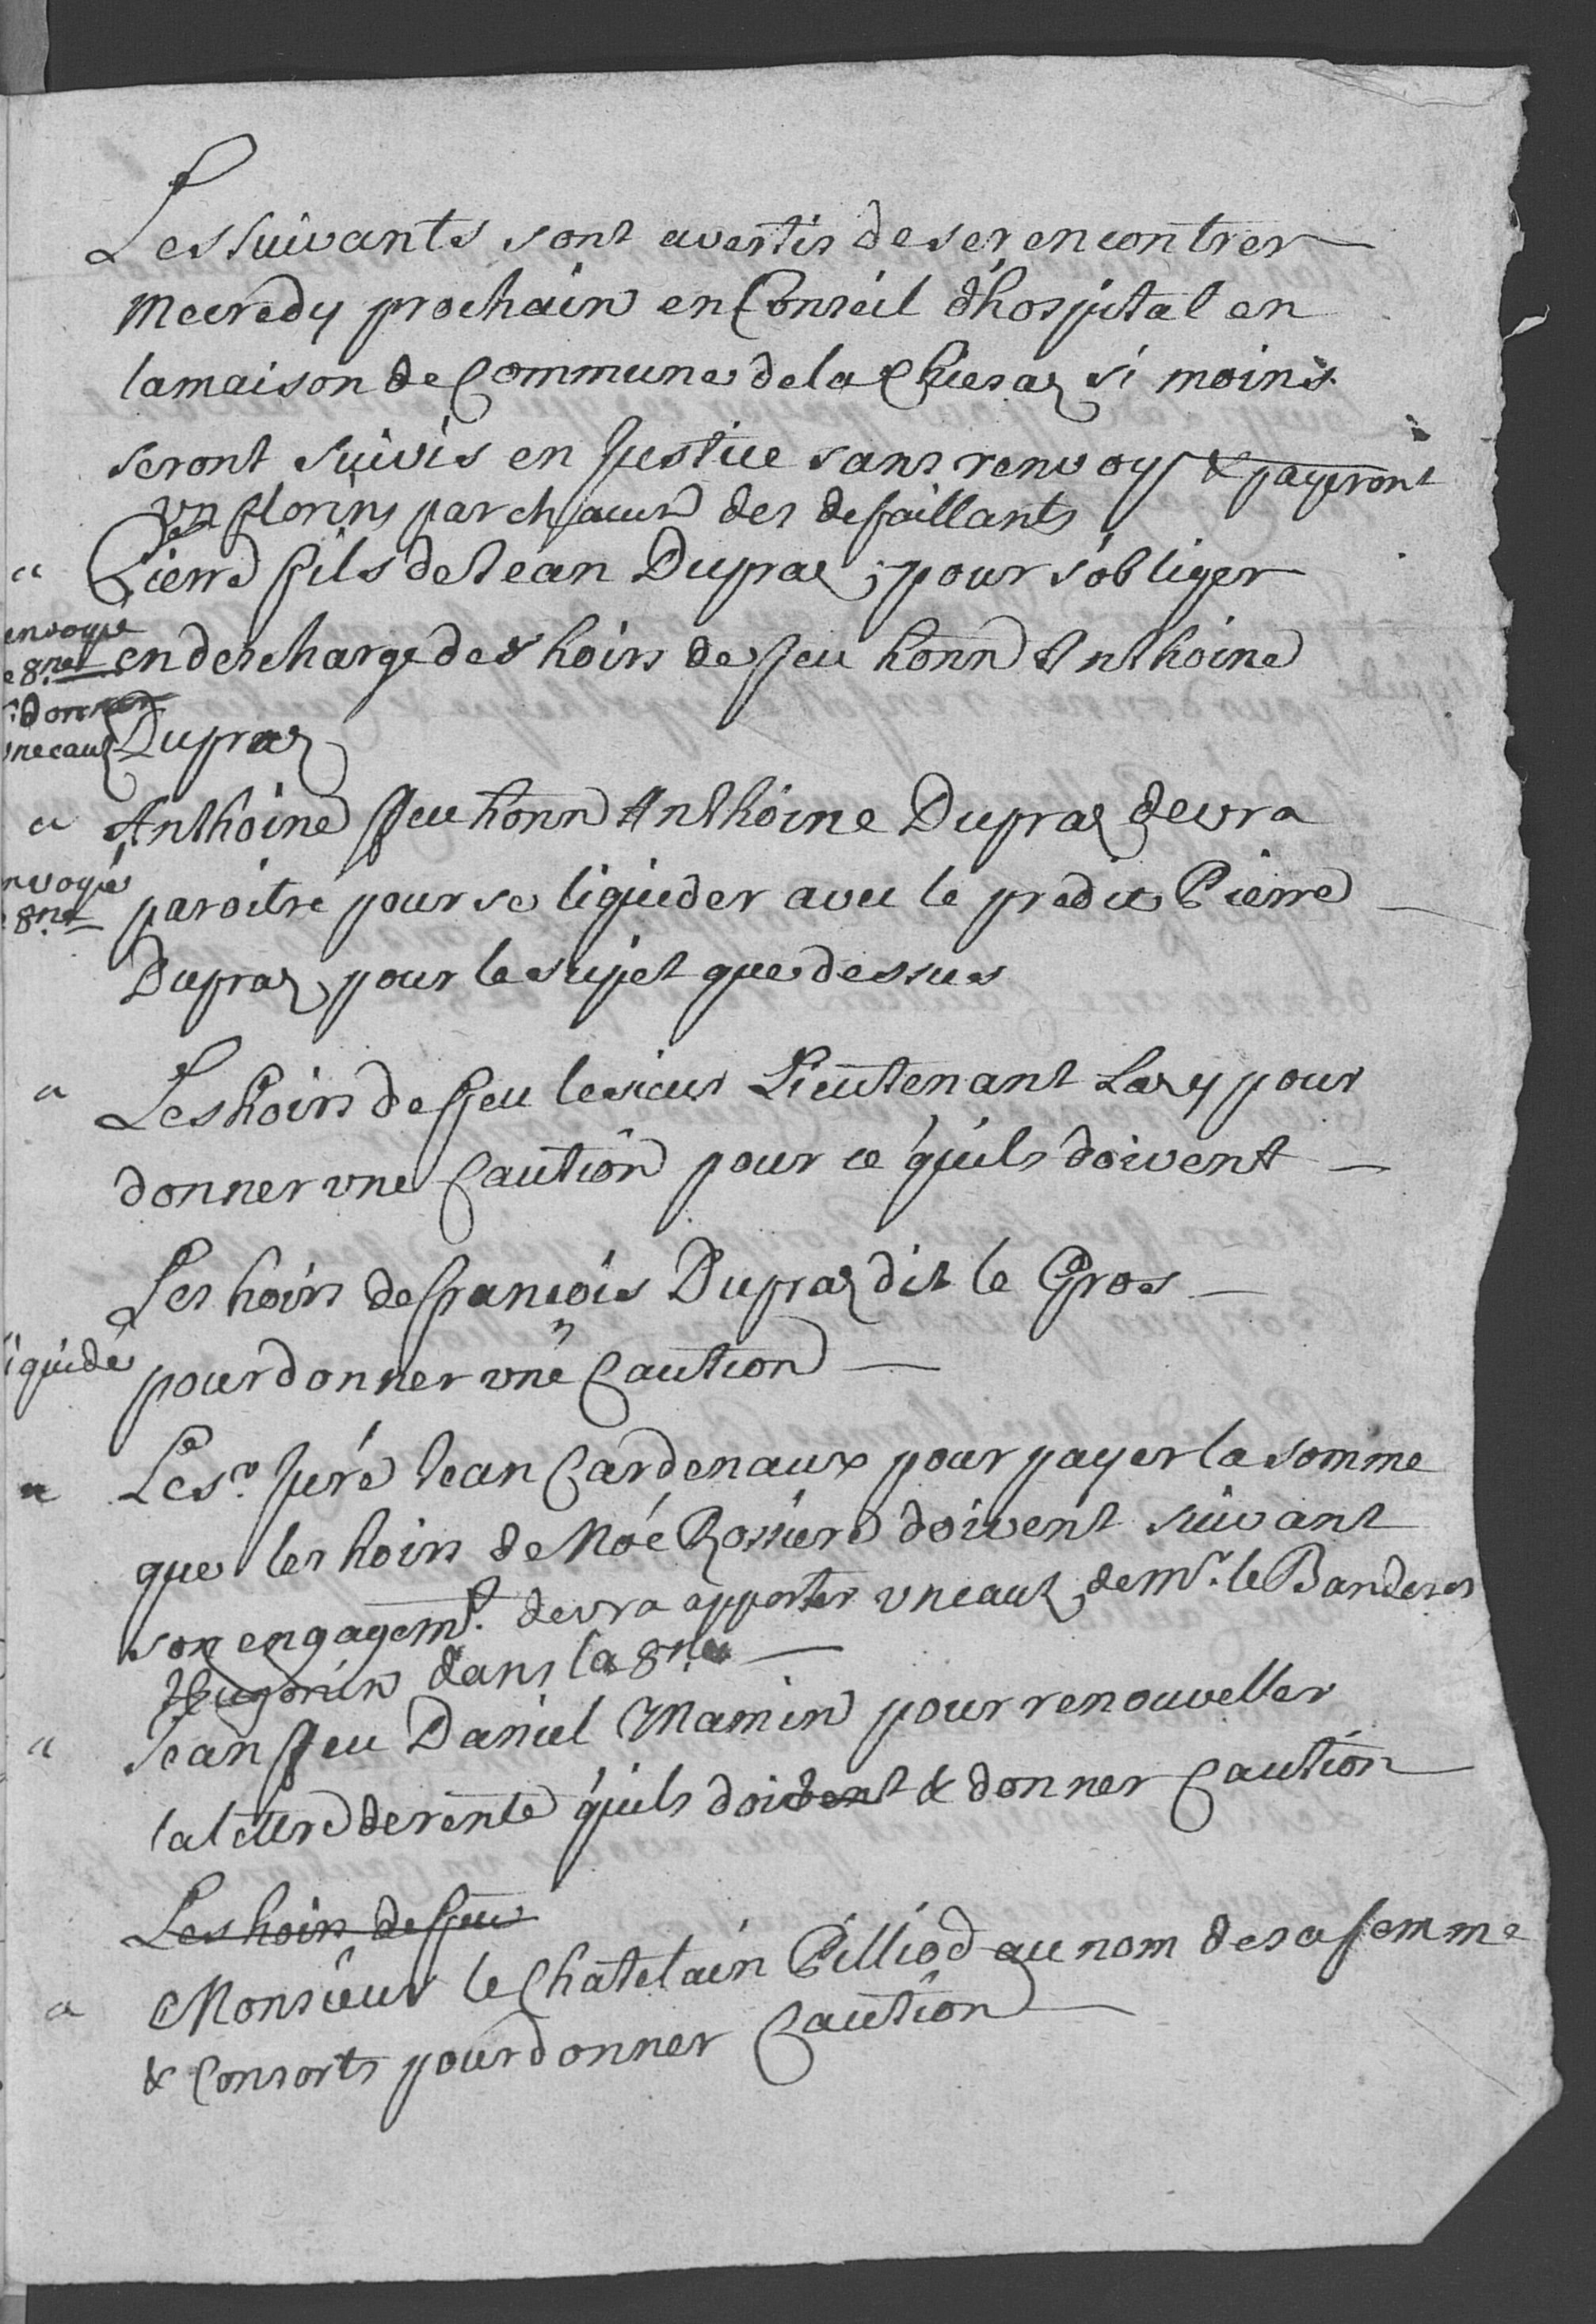 Les suivants sont avertis de se rencontrer
Mecredy prochain en Conseil d'hospital en
la maison de Commune de la Chiesaz si moins
seront suivis en Justice sans renvoys & payeront
un florins par chacun des defaillants
" Pierre fils de Jean Dupraz, pour s'obliger
envoyé
e 8.ne
en descharge des hoirs de feu honn Anthoine
donner
une caut
Dupraz
" Anthoine feu honn Anthoine Dupraz devra
nvoyé
8.ne
paroitre pour se liquider avec le predit Pierre
Dupraz pour le sujet que dessus
" Les hoirs de feu le sieur Lieutenant Lazy pour
donner une Caution pour ce qu'ils doivent
Les hoirs de françois Dupraz dit le Gros
iquidé
pour donner une Caution
" Le sr. Juré Jean Cardenaux pour payer la somme
que les hoirs de Noé Rossiere doivent suivant
son engagemt. devra apporter un caut de mr. le Banderet
Hugonin dans la 8.ne
" Jean feu Daniel Mamin pour renouveller
la lettre de rente qu'ils doivent & donner Caution
Les hoirs de feu
" Monsieur le Chatelain Pilliod au nom de sa femme
& Consorts pour donner Caution